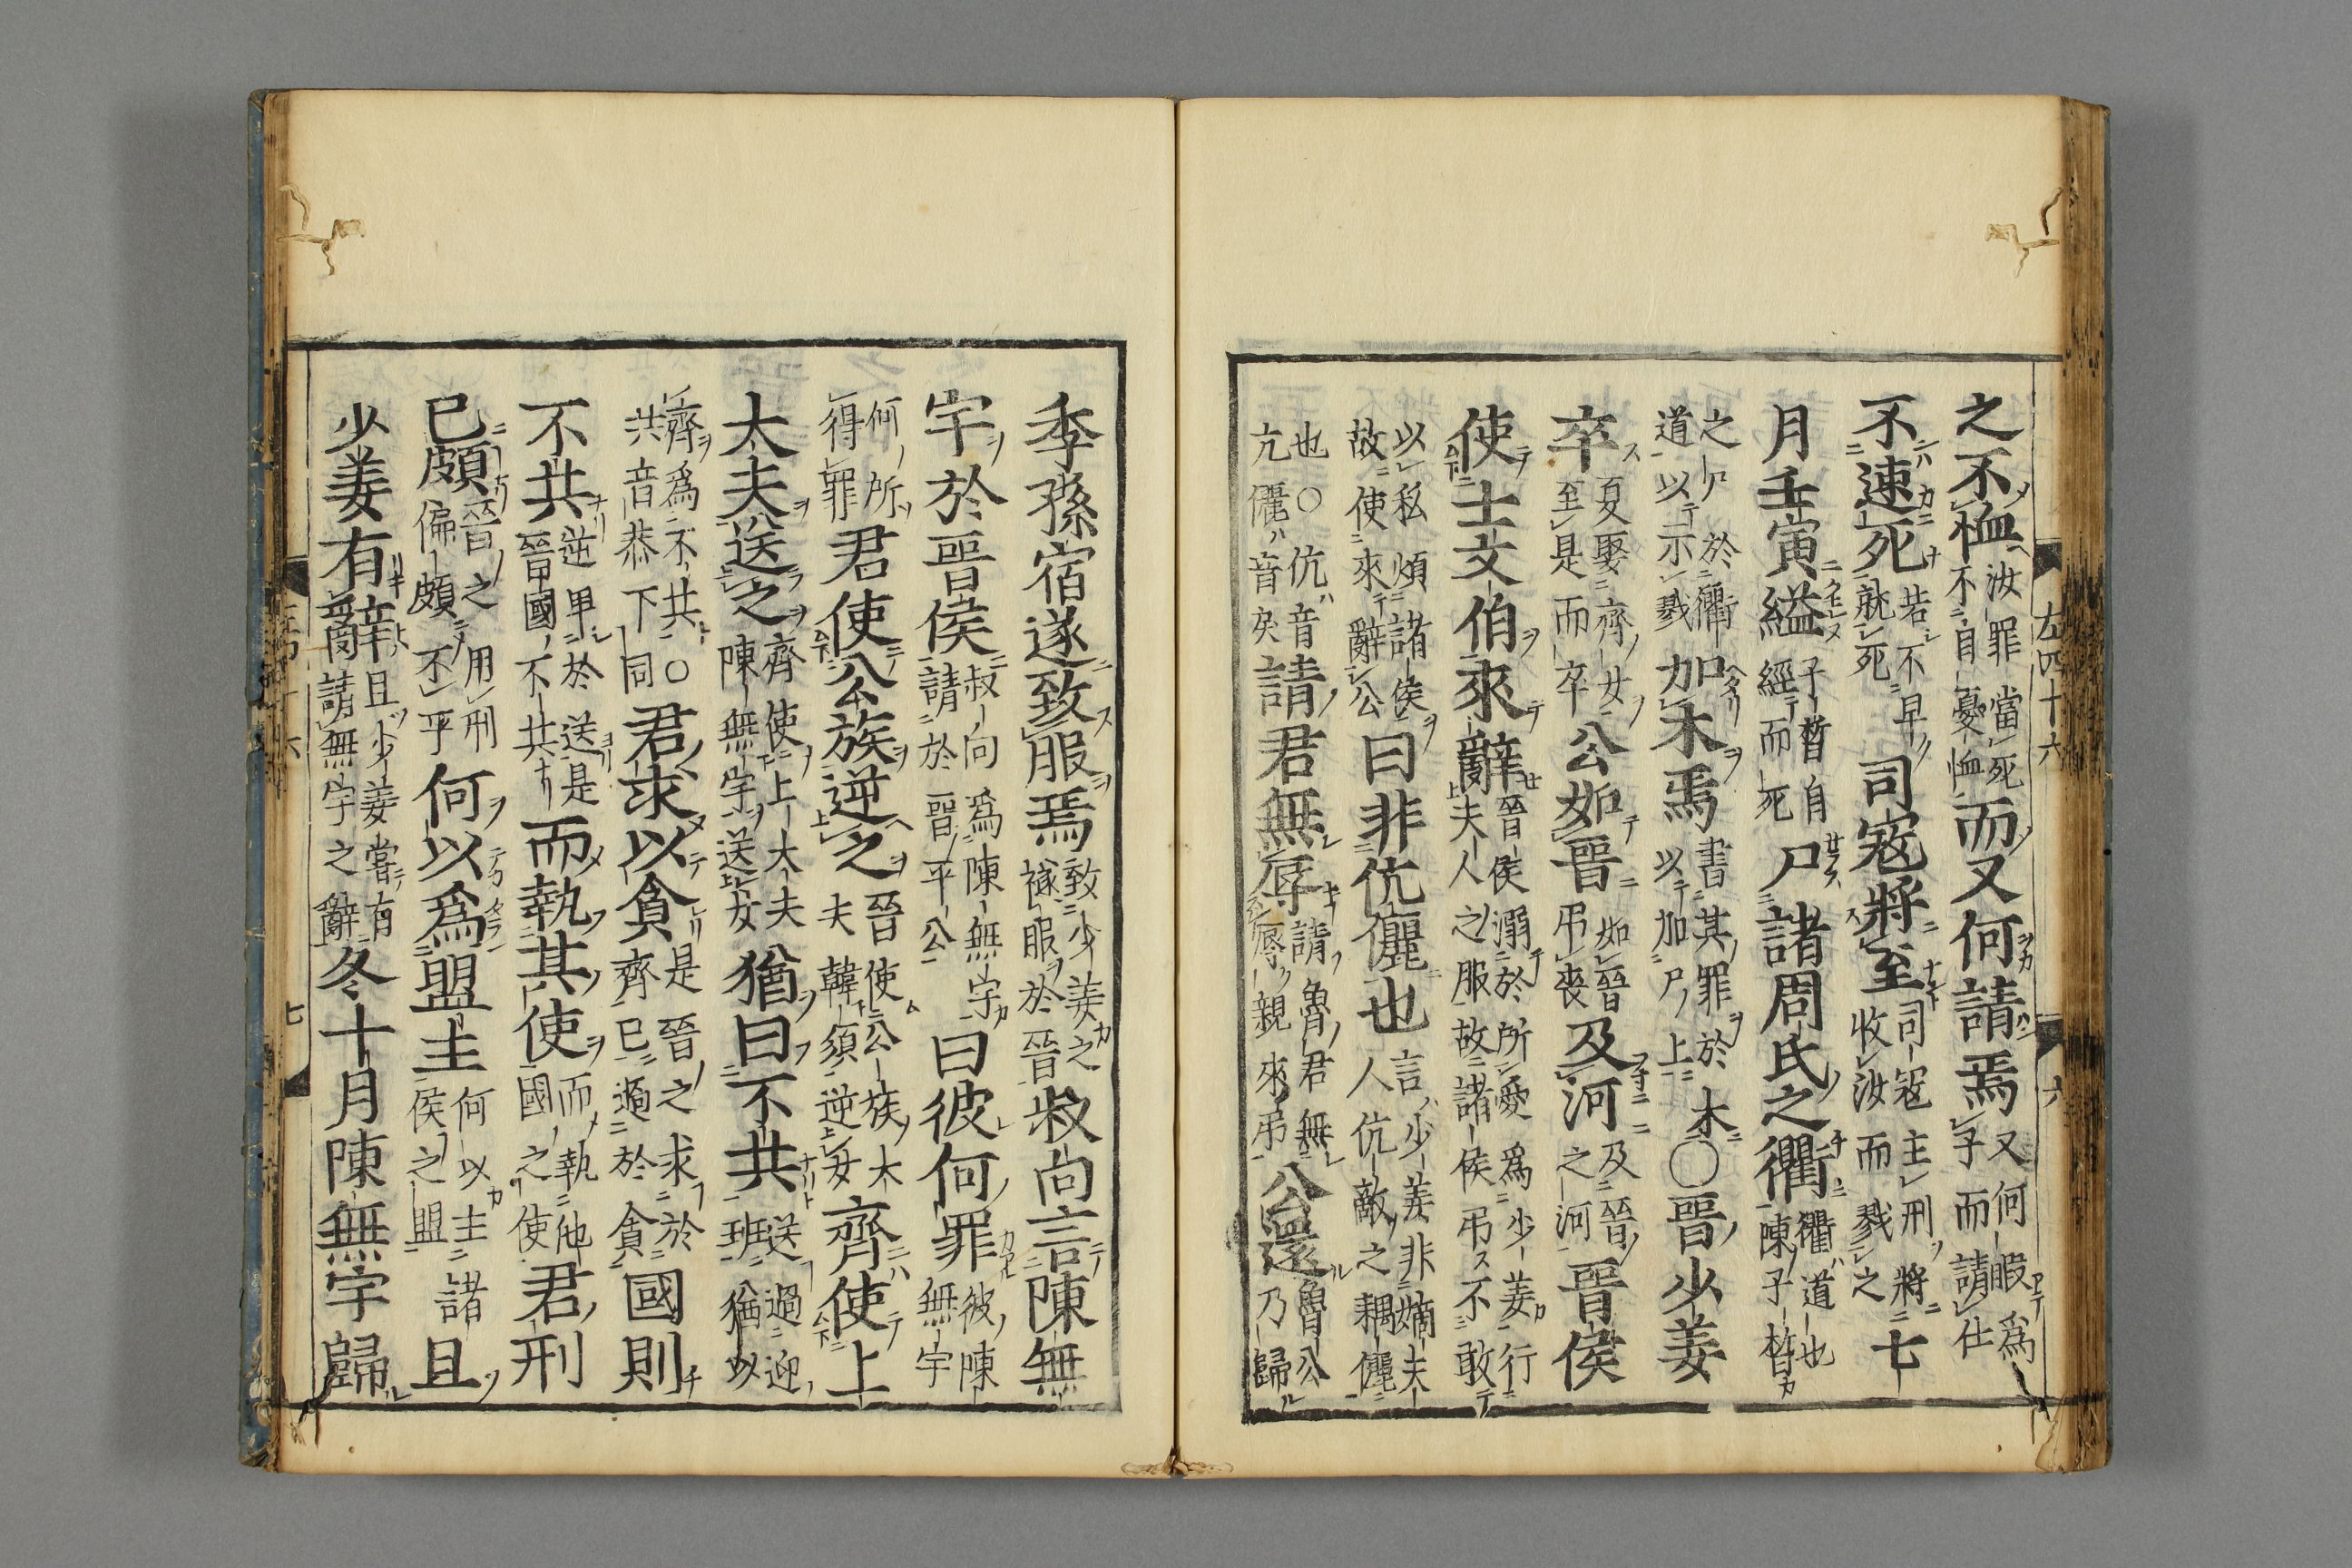 之不恤汝罪當死不自憂恤而又何請焉又何暇爲子而請仕
不速死若不早就死司寇將至司寇主刑將收汝而戮之七
月壬寅縊子晳自經而死尸諸周氏之衢衢道也陳子晳
之尸於衢道以示戮加木焉書其罪於木以加尸上○晉少姜
卒夏娶齊女至是而卒公如晉如晉弔喪及河及晉之河晉侯
使士文伯來辭晉侯溺於所愛爲少姜行夫人之服故諸侯弔不敢
以私煩諸侯故使來辭公曰非伉儷也言少姜非嫡夫人伉敵之耦儷
也○伉音亢儷音矣請君無辱請魯君無辱親來弔公還魯公乃歸
左四十六
六
季孫宿遂致服焉致少姜之襚服於晉叔向言陳無
宇於晉侯叔向爲陳無宇請於晉平公曰彼何罪彼陳無宇
何所得罪君使公族逆之晉使公族大夫韓須逆女齊使上
大夫送之齊使上大夫陳無宇送女猶曰不共送過迎班猶以
齊爲不共○共音恭下同君求以貪是晉之求於齊已過於貪國則
不共逆卑於送是晉國不共而執其使而執他國之使君刑
已頗晉之用刑偏頗不平何以爲盟主何以主諸侯之盟且
少姜有辭且少姜嘗有辭請無宇之辭冬十月陳無宇歸
七